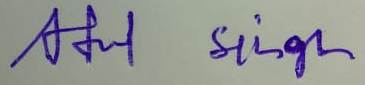 Atul Singh